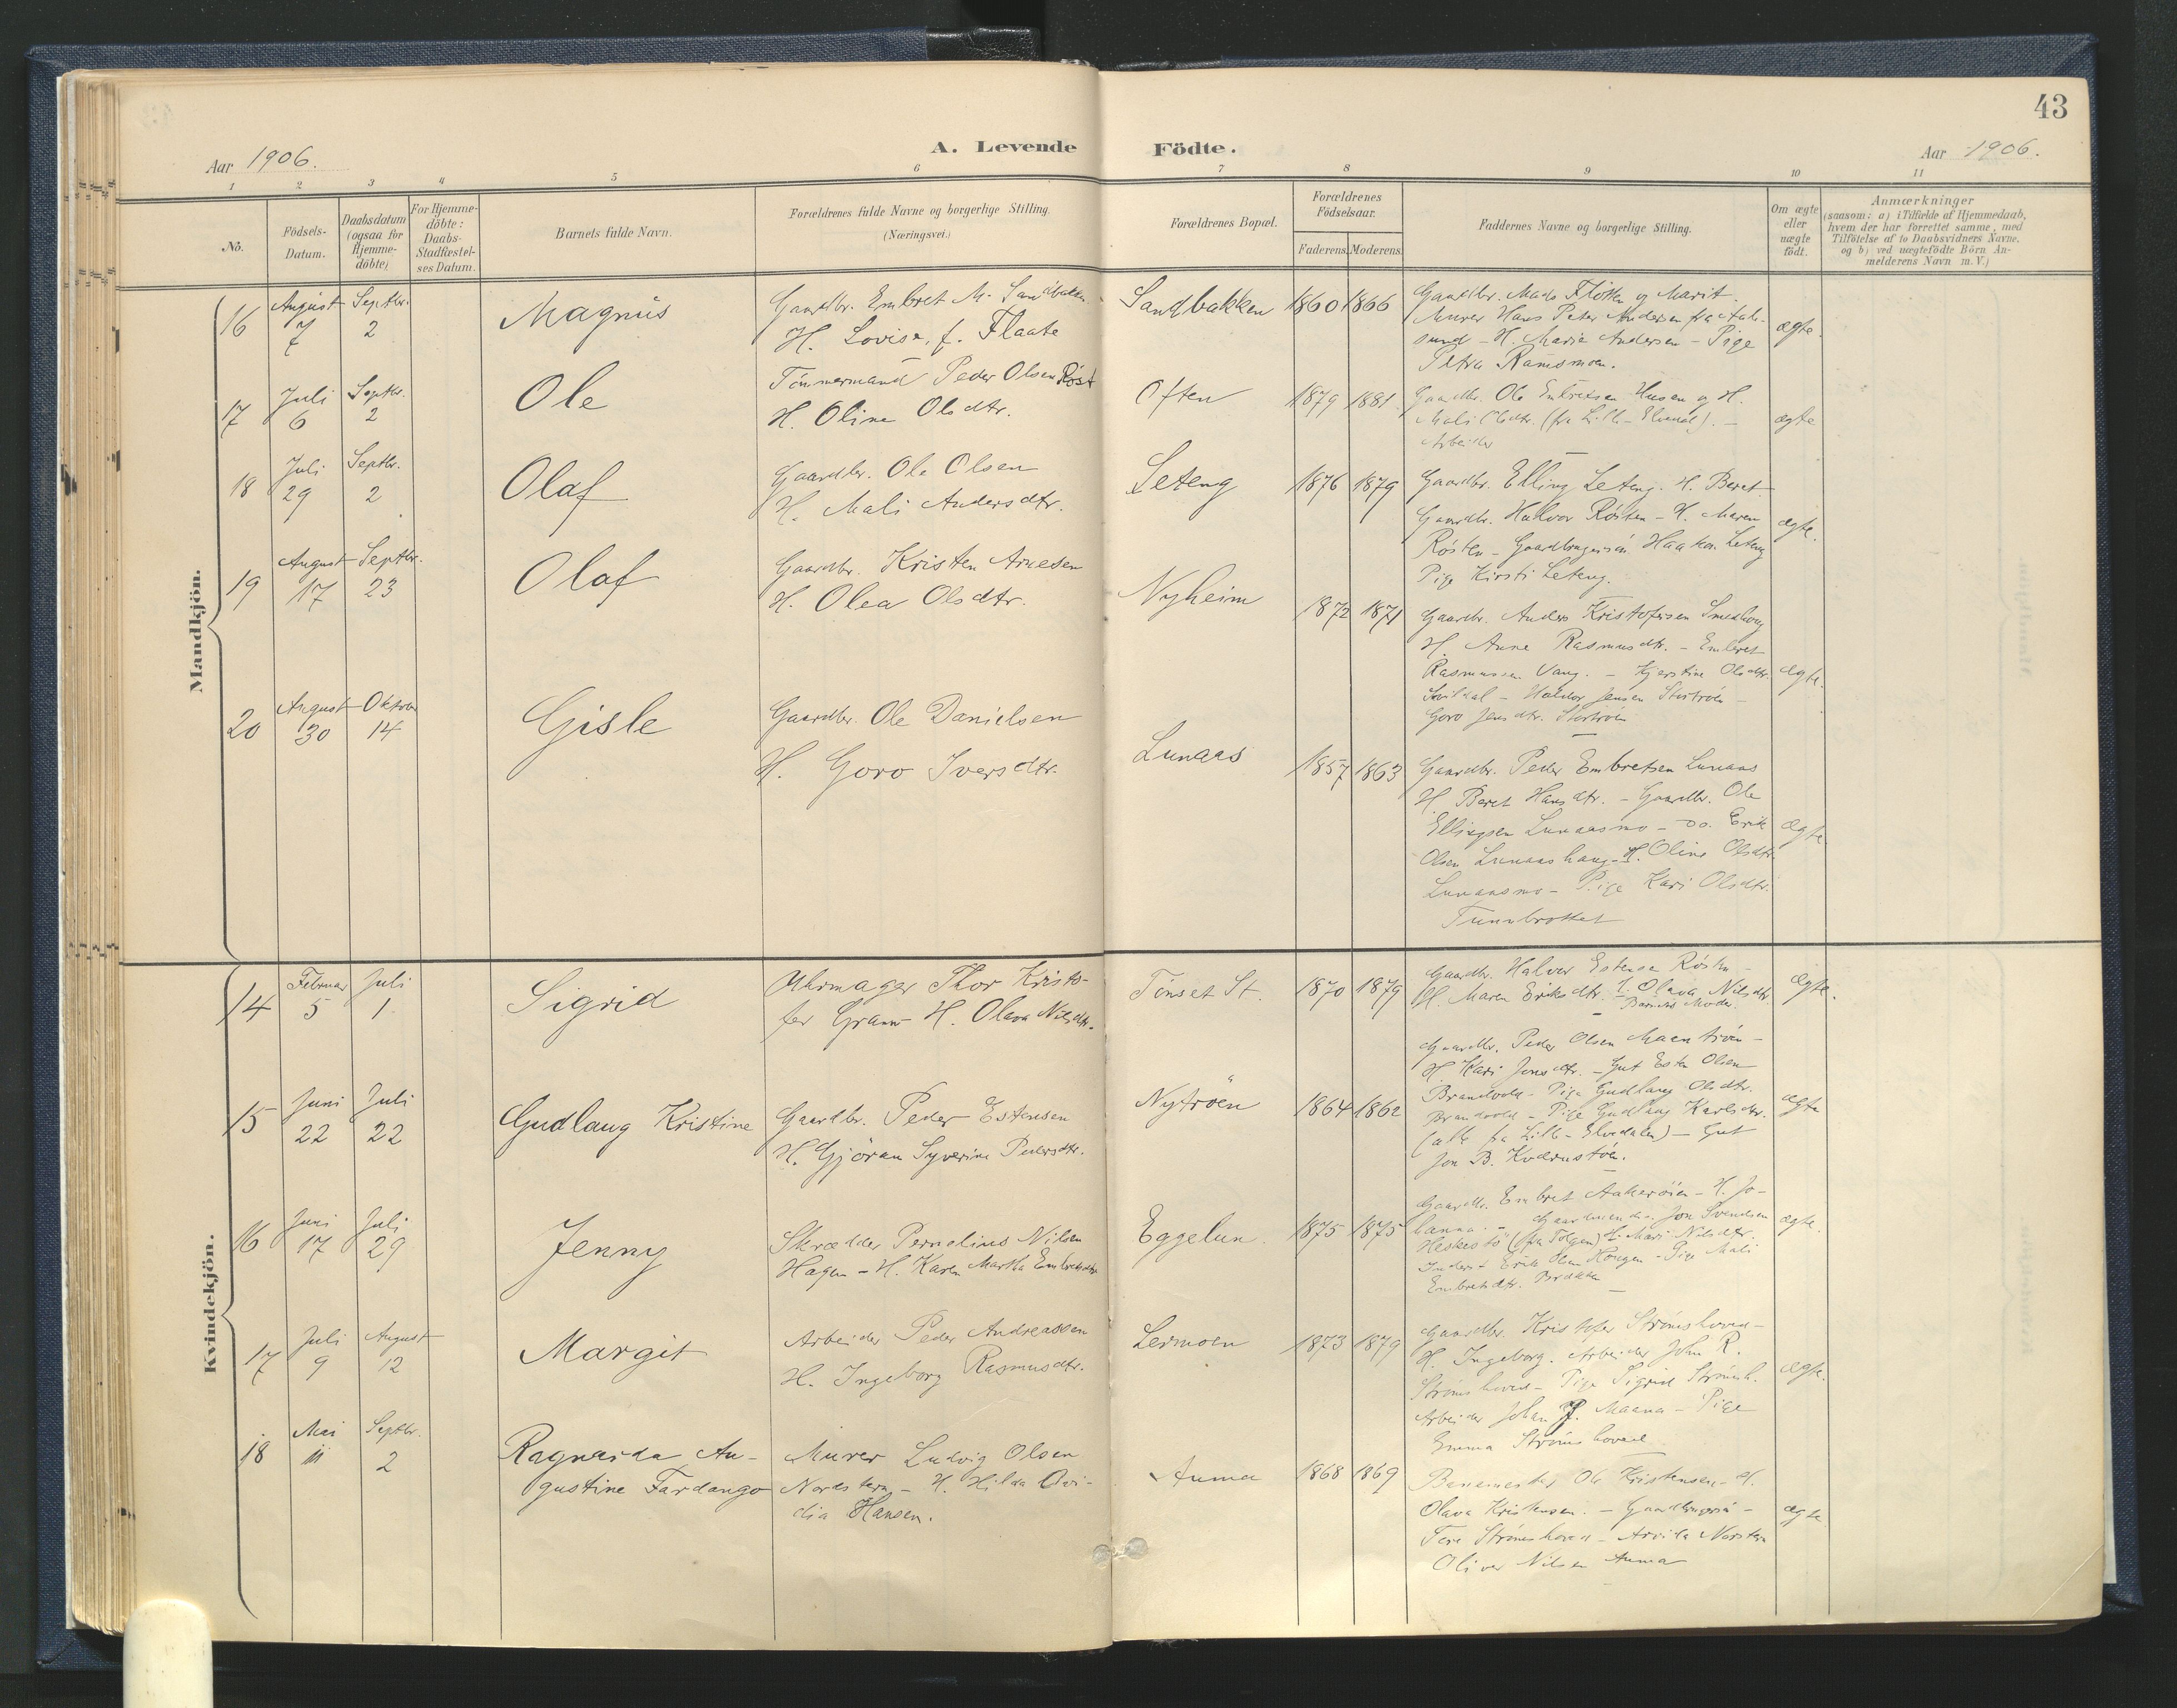 43
Aar 1906.
A. Levende Födte.
Aar 1906.
1 2 3 4 5 6 7 8 9 10 11
No.
Födsels-
Datum.
Daabsdatum
(ogsaa for
Hjemme-
döbte)
For Hjemme-
döbte:
Daabs-
Stadfæstel-
ses Datum.
Barnets fulde Navn.
Forældrenes fulde Navne og borgerlige Stilling.
(Næringsvei.)
Forældrenes Bopæl.
Forældrenes
Födselsaar.
Faderens. Moderens.
Faddernes Navne og borgerlige Stilling.
Om ægte
eller
uægte
födt.
Anmærkninger
(saasom: a) i Tilfælde af Hjemmedaab,
hvem der har forrettet samme, med
Tilföielse af to Daabsvidners Navne,
og b) ved uægtefödte Börn An-
melderens Navn m. V.)
Mandkjön.
16
August
7
Septbr.
2
Magnus
Gaardbr. Embret M. Sandbakken
H. Lovise, f. Flaate
Sandbakken
1860 1866
Gaardbr. Mads Fløtten og Marit.
Murer Hans Peter Andersen fra
sund - H. Maria Andersen - Pige
Petra Ramsmoen.
ægte.
17
Juli
6
Septbr.
2
Ole
Tömmermand Peder Olsen Röst
H. Oline Olsdtr.
Often
1879 1881
Gaardbr. Ole Embretsen Husen og H.
Mali Olsdtr. (fra Lille-Elvedal). -
Arbeider
ægte
18
Juli
29
Septbr.
2
Olaf
Gaardbr. Ole Olsen
H. Mali Andersdtr.
Leteng
1876 1879
Gaardbr. Elling Leteng. H. Beret
Gaardbr. Halvor Rösten - H. Maren
Rösten - Gaardbrugersön Haakon Leteng
Pige Kirsti Leteng.
ægte.
19
August
17
Septbr.
23
Olaf
Gaardbr. Kristen Arnesen
H. Olea Olsdtr.
Nyheim
1872 1871
Gaardbr. Anders Kristofersen Smedhaug
H. Anne Rasmusdtr. - Embret
Rasmussen Vang. - Kjerstine Olsdtr.
- Haldor Jensen Stortröen -
Goro Jensdtr. Stortröen
ægte.
20
August
30
Oktober
14
Gisle
Gaardbr. Ole Danielsen
H. Goro Iversdtr.
Lunaas
1857 1863
Gaardbr. Peder Embretsen Lunaas
H. Beret Hansdtr. - Gaardbr. Ole
Ellingsen Lunaasmo - do. Erik
Olsen Lunaashaug - H. Oline Olsdtr.
Lunaasmo - Pige Kari Olsdtr.
Tunnbrottet
ægte.
Kvindekjön.
14
Februar
5
Juli
1
Sigrid
Uhrmager Thor Kristo-
fer Gram - H. Olava Nilsdtr.
Tönset St.
1870 1879
Gaardbr. Halvor Estensen Rösten -
H. Maren Eriksdtr. - Olava Nilsdtr.
Barnets Moder.
ægte.
15
Juni
22
Juli
22
Gudlaug Kristine
Gaardbr. Peder Estensen
H. Gjöran Syverine Pedersdtr.
Nytröen
1864 1862
Gaardbr. Peder Olsen Maantröen -
H. Kari Jonsdtr. - Gut Esten Olsen
Brandvold - Pige Gudlaug Olsdtr.
Brandvold - Pige Gudlaug Karlsdtr.
(alle fra Lille-Elvedalen) - Gut
Jon B. Kvernstöen.
ægte
16
Juni
17
Juli
29
Jenny
Skrædder Pernelius Nilsen
Hagen - H. Karen Martha Embretsdtr.
Eggelun.
1875 1875
Gaardbr. Embret Aakeröien - H. Jo-
hanna. - Jon Svendsen
(fra Tolgen) H. Mari Nilsdtr.
Inderst Erik Olsen Haugen - Pige Mali
Embretsdtr. Brækken
ægte.
17
Juli
9
August
12
Margit
Arbeider Peder Andreassen
H. Ingeborg Rasmusdtr.
Lermoen
1873 1879
Gaardbr. Kristofer Strömshoved -
H. Ingeborg. Arbeider John R.
Strömshoved - Pige Sigrid Strömsh.
Arbeider Johan P. Maana - Pige
Emma Strömshoved
ægte.
18
Mai
11
Septbr.
2
Ragnarda Au-
gustine Fardango
Murer Ludvig Olsen
Nordstern - H. Hilda Ovi-
dia Hansen.
Auma
1868 1869
Banemester Ole Kristensen - H.
Olava Kristensen. - Gaardbrugersön -
Tore Strömshoved - Arvida Norstern
Oliver Nilsen Auma
ægte